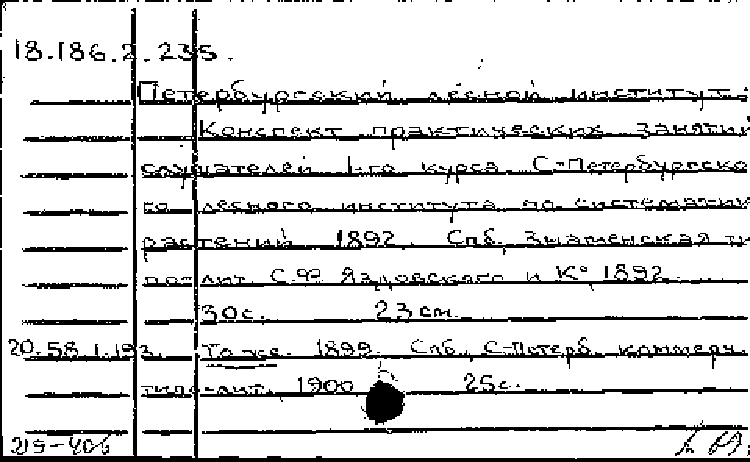 18.186.2.235.
Петербургский лесной институт.
Конспект практических занятий
слушателей 1-го курса С-Петербургско
го лесного института по систематик
растений 1892. Спб, Знаменская ти
по-лит. С.Ф. Яздовского и К° 1892.
30с. 23см.
20.58.1.193. То же. 1899. Спб, С-Петерб. коммерч.
типо-лит. 1900 25с.
215-406